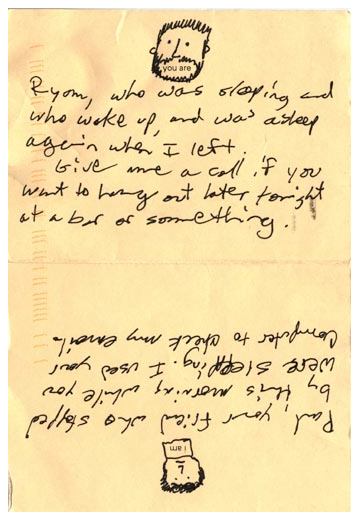 you are
Ryan, who was sleeping and
who woke up, and was asleep
again when I left.
Give me a call if you
want to hang out later tonight
at a bar or something.
i am
Paul, your friend who stopped
by this morning while you
were sleeping. I used your
computer to check my email.